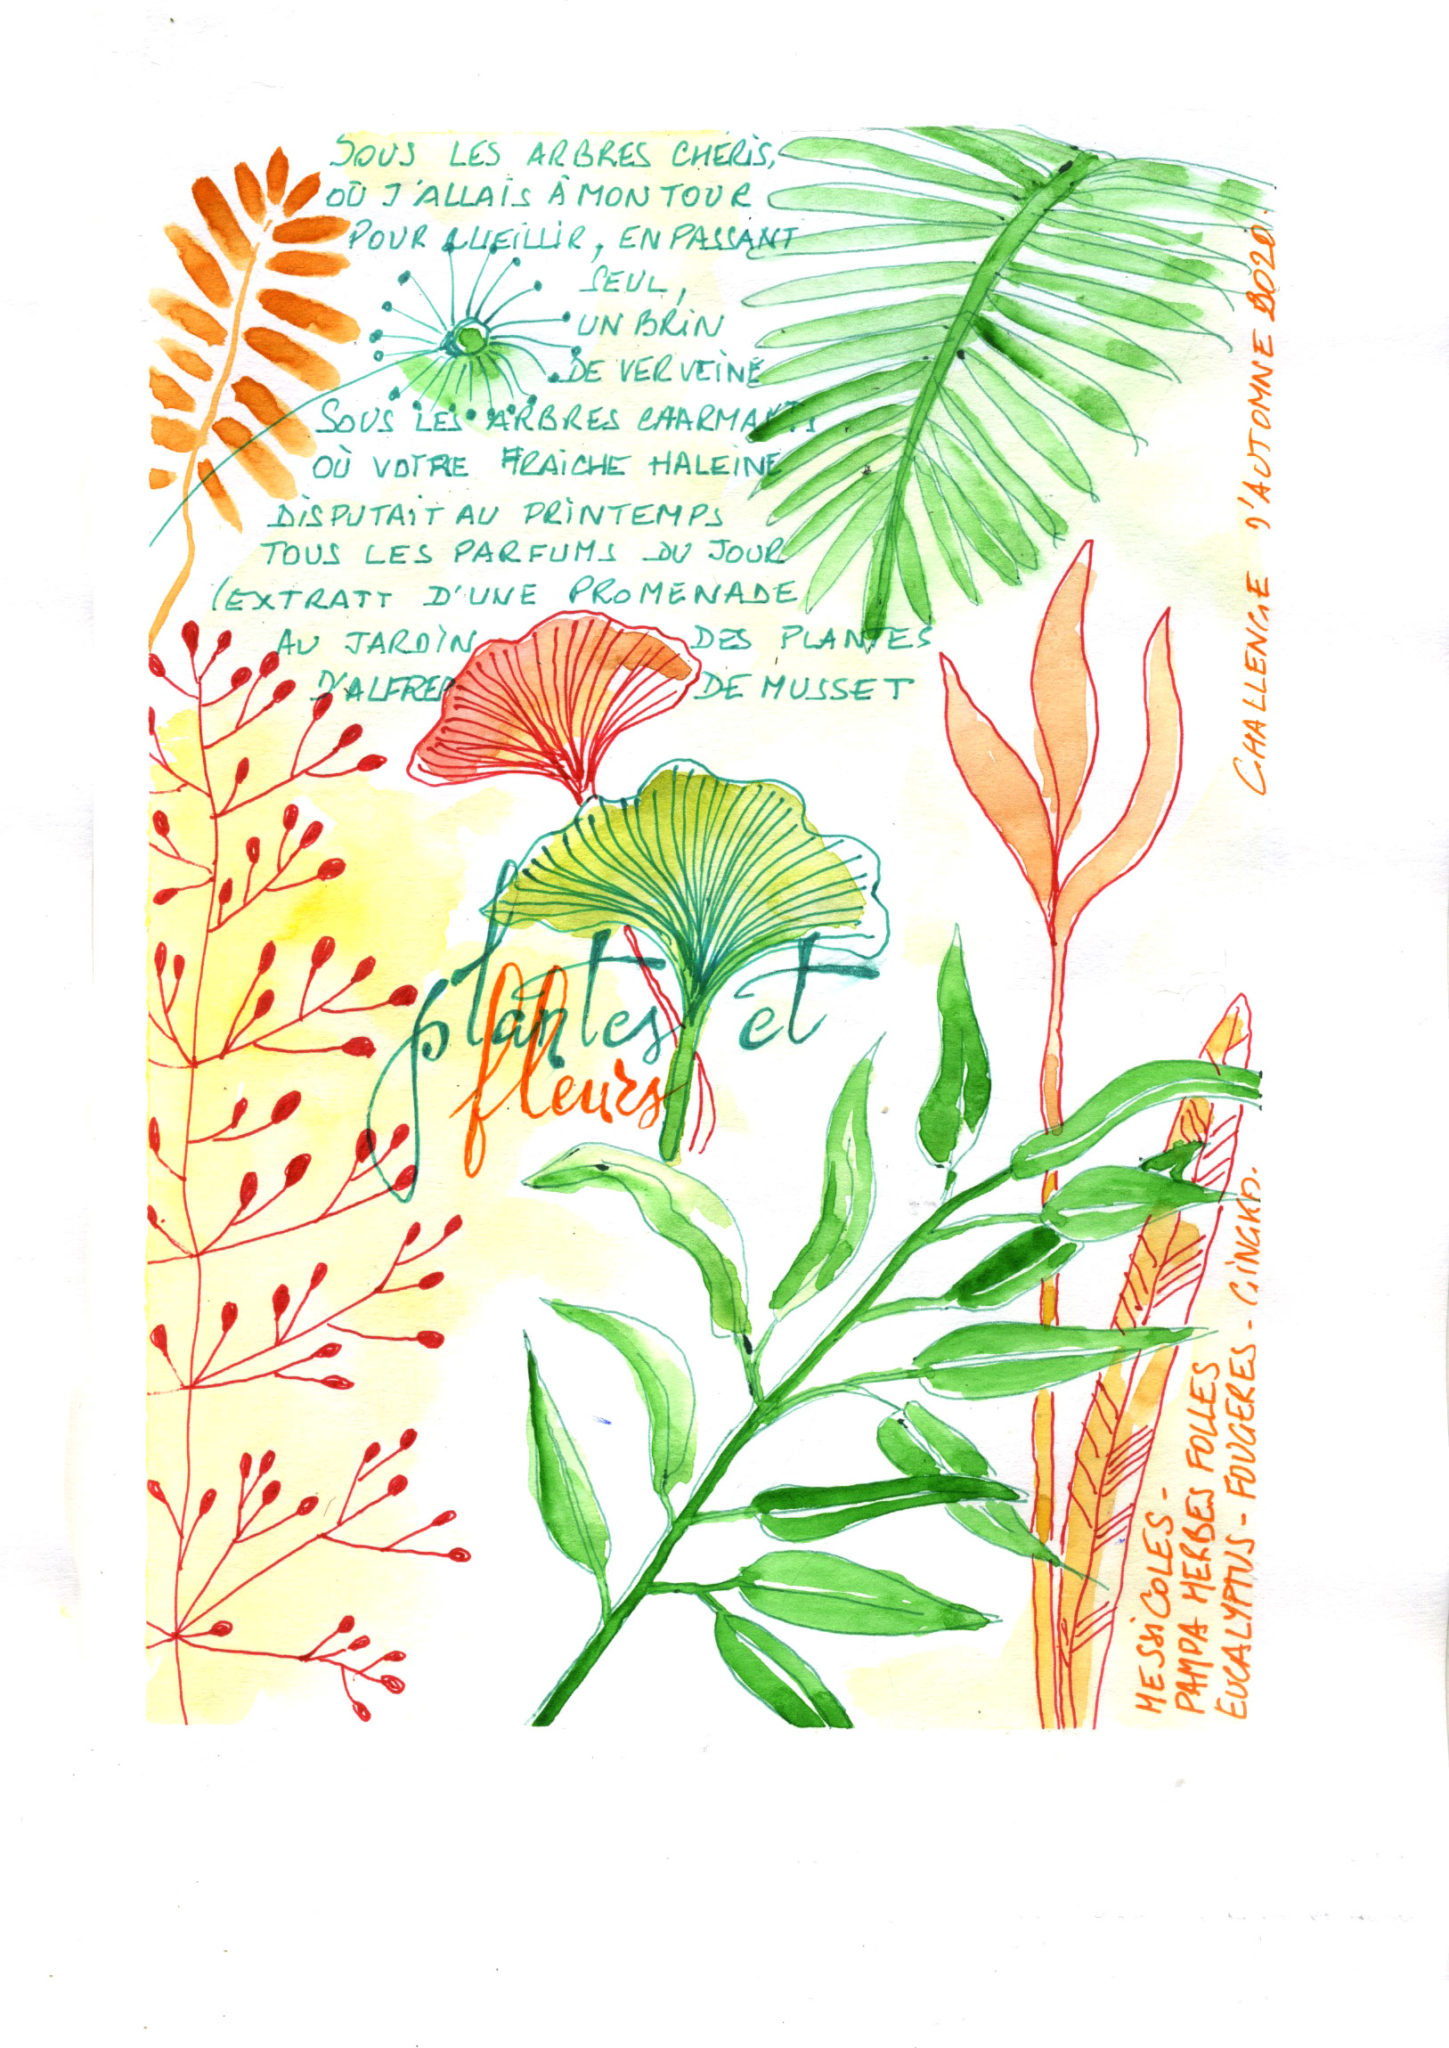 SOUS LES ARBRES CHERIS,
OÙ J'ALLAIS À MON TOUR
POUR CUEILLIR, EN PASSANT
SEUL,
UN BRIN
DE VERVEINE
SOUS LES ARBRES CHARMANTS
OÙ VOTRE FRAICHE HALEINE
DISPUTAIT AU PRINTEMPS
TOUS LES PARFUMS DU JOUR
(EXTRATT D'UNE PROMENADE
AU JARDIN DES PLANTES
D'ALFRED DE MUSSET
plantes et
fleurs
CHALLENGE D'AUTOMNE 2020.
MESSICOLES -
PAMPA HERBES FOLLES
EUCALYPTUS - FOUGERES - GINGKO.